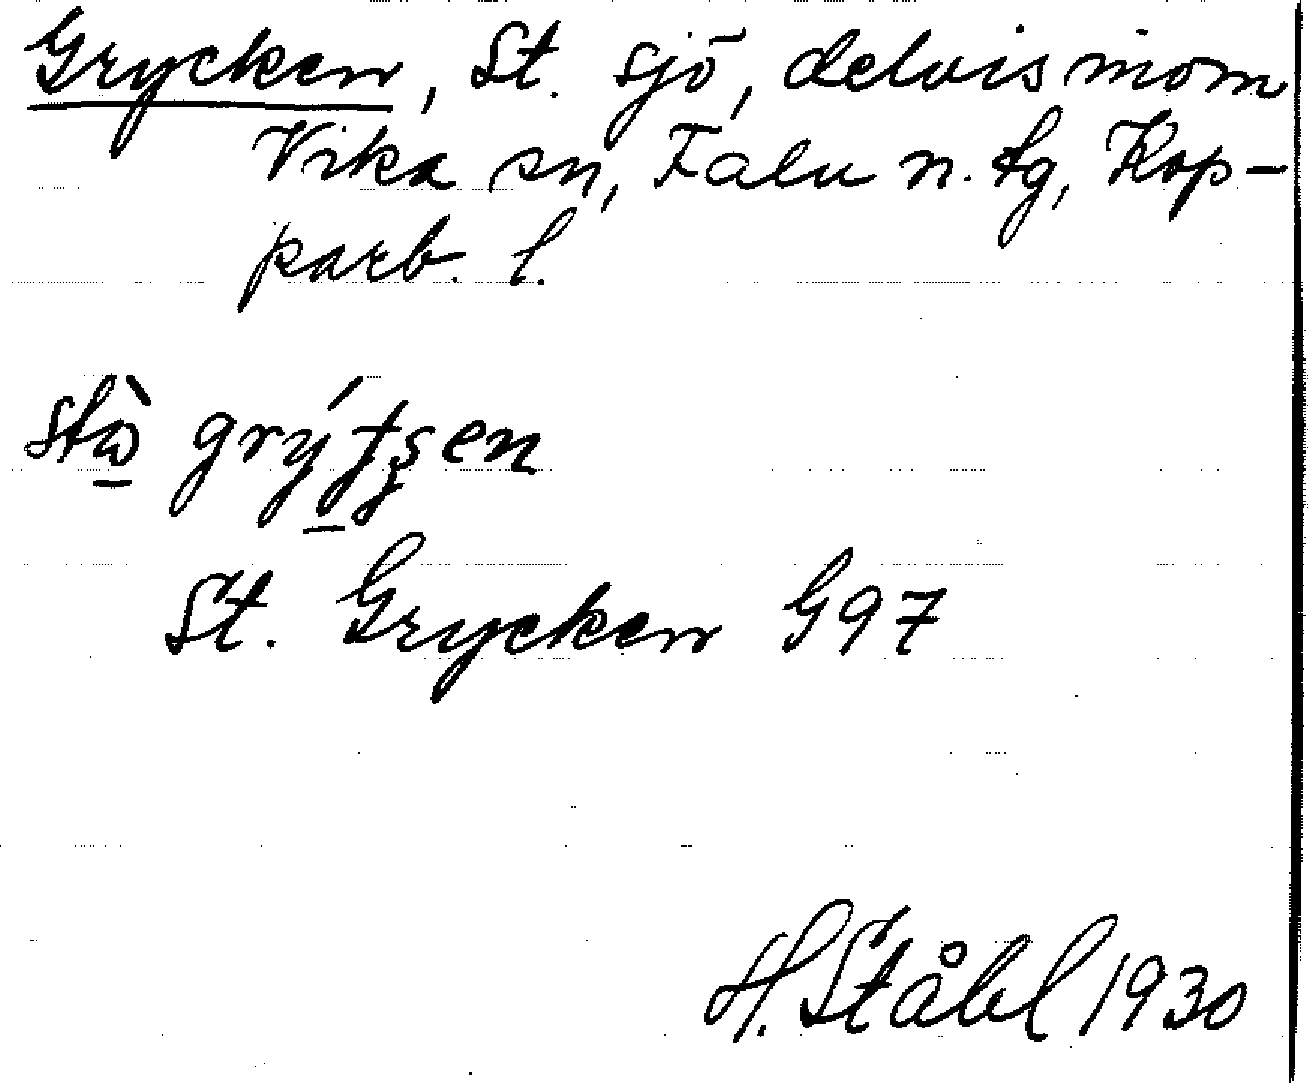 Grycken, St. sjö, delvis inom
Vika sn, Falu n. tg, Kop-
parb. l.
St. Grycken G97
H. Ståhl 1930